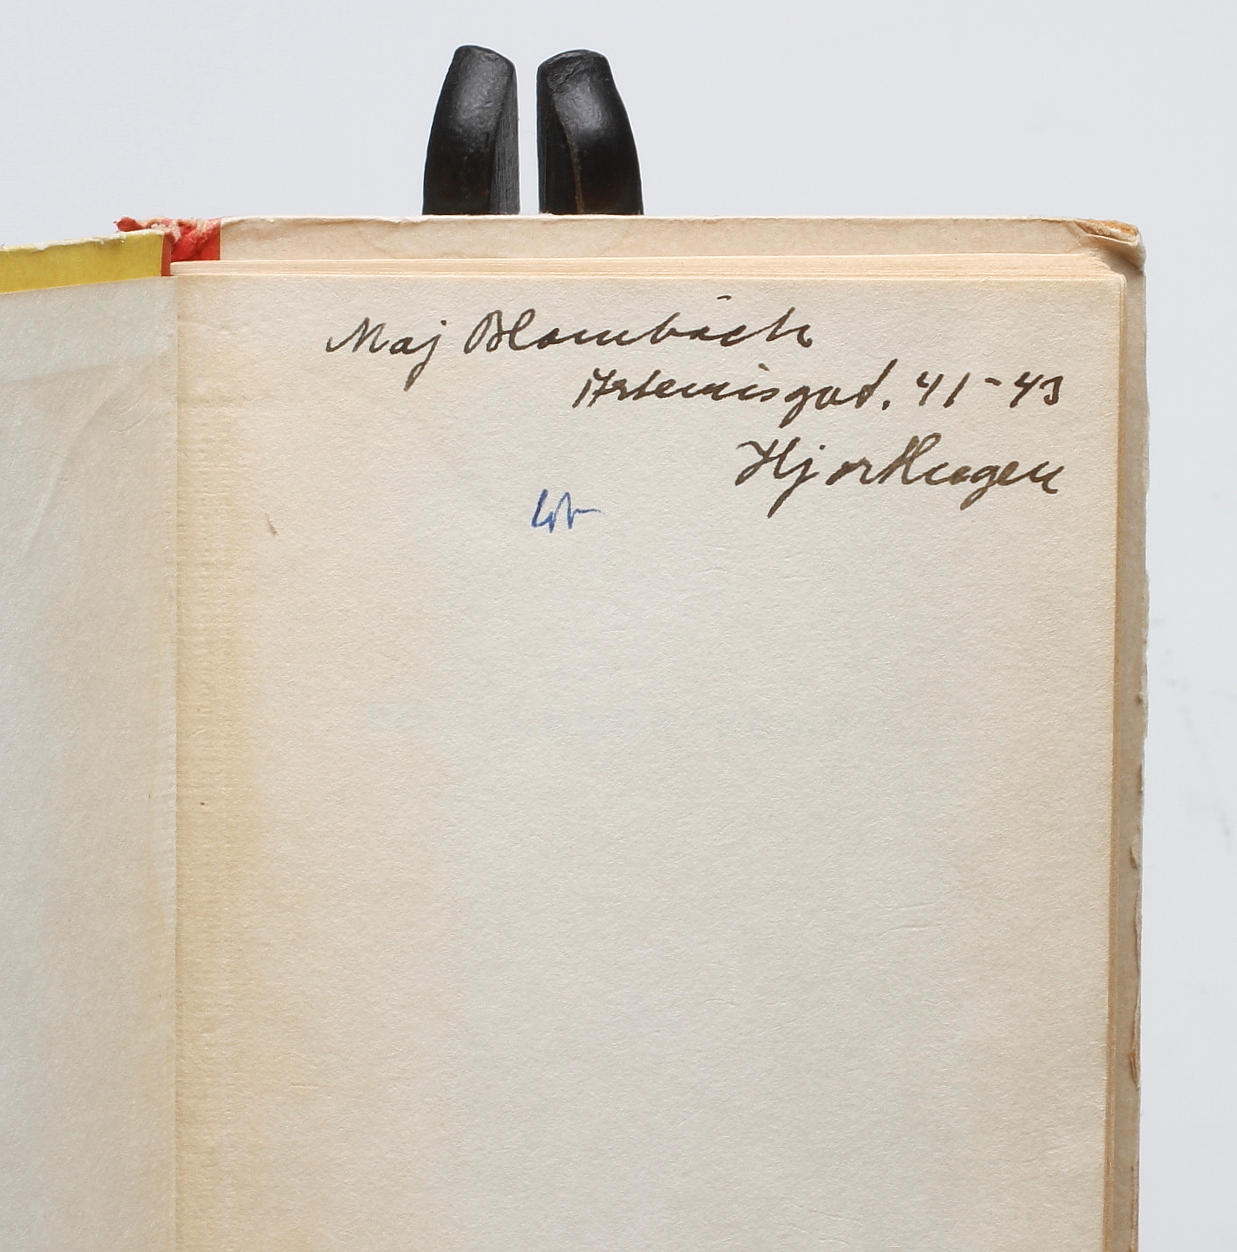 Maj Blombäck
Artemisgat. 41-43
Hjorthagen